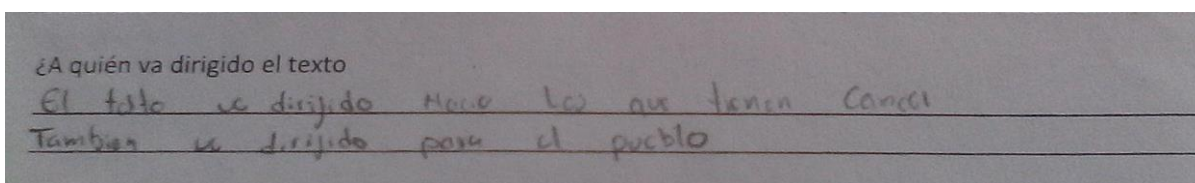 ¿A quién va dirigido el texto
El texto va dirijido Hacia los que tienen Cancer
Tambien va dirijido para el pueblo